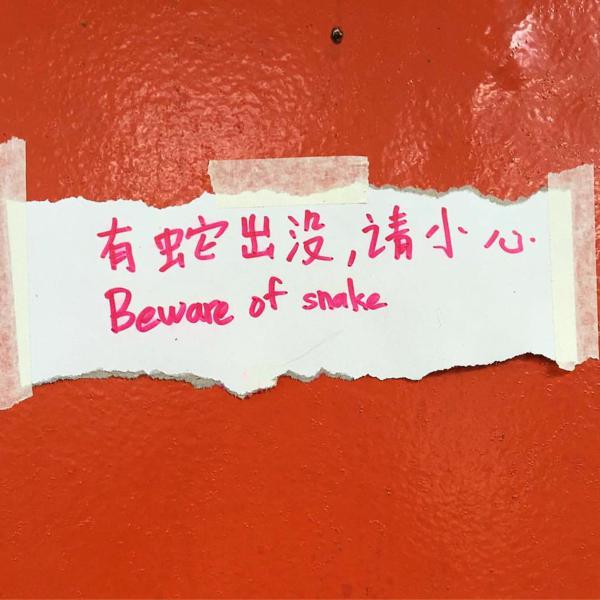 有蛇出没,请小心.
Beware of snake